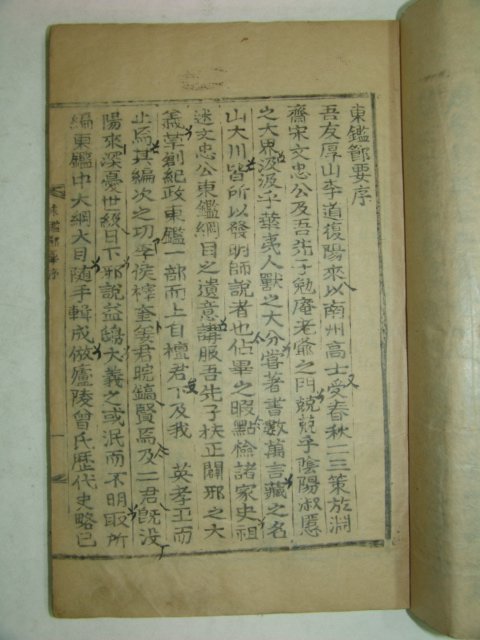 東鑑節要序
吾友厚山李道復陽來以南州高士受春秋一二策於淵
齋宋文忠公及吾先子勉庵老爺之門兢兢乎陰陽淑慝
之大界汲汲乎華夷人獸之大分嘗著書數萬言藏之名
山大川皆所以發明師說者也佔畢之暇點檢諸家史祖
述文忠公東鑑綱目之遺意講服吾先子扶正闢邪之大
義草創紀政東鑑一部而上自檀君下及我 英孝王而
止焉其編次之功李侯梓奎姜君晥鎬賢焉及二君旣沒
陽來深憂世級日下邪說益鴟大義之或泯而不明取所
編東鑑中大綱大目隨手輯成倣廬陵曾氏歷代史略已
東鑑節要序